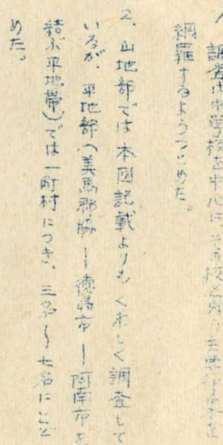 調査は、学校を中心に、
網羅するようつとめた。
2. 山地部では本図記載よりもくわしく調査して
いるが、平地部(美馬郡脇ー徳島市ー阿南市を
結ぶ平地帯)では一町村につき、三名〜七名にとど
めた。